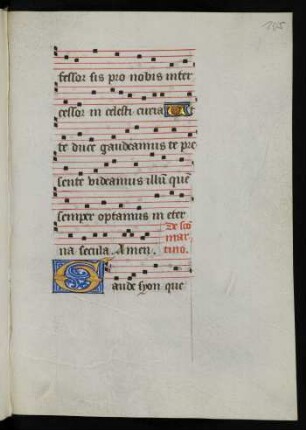 fessor sis pro nobis inter
cessor in celesti curia Ut
te duce gaudeamus te pre
sente videamus illū quē
semper optamus in eter
na secula. Amen.
De sco
mar
tino.
Gaude syon que